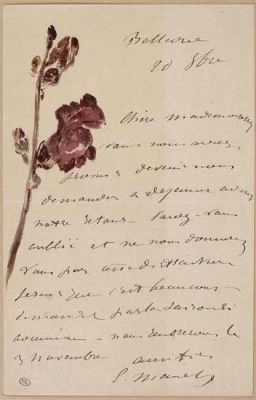 Bellevue
20 8bre
Chère mademoiselle
vous nous aviez
promis de venir nous
demander à déjeuner avant
notre retour. L'avez-vous
oublié et ne nous donnerez
vous pas
que c'est beaucoup
demander par la saison
nous rentrerons le
3 novembre amitiés
E. Manet